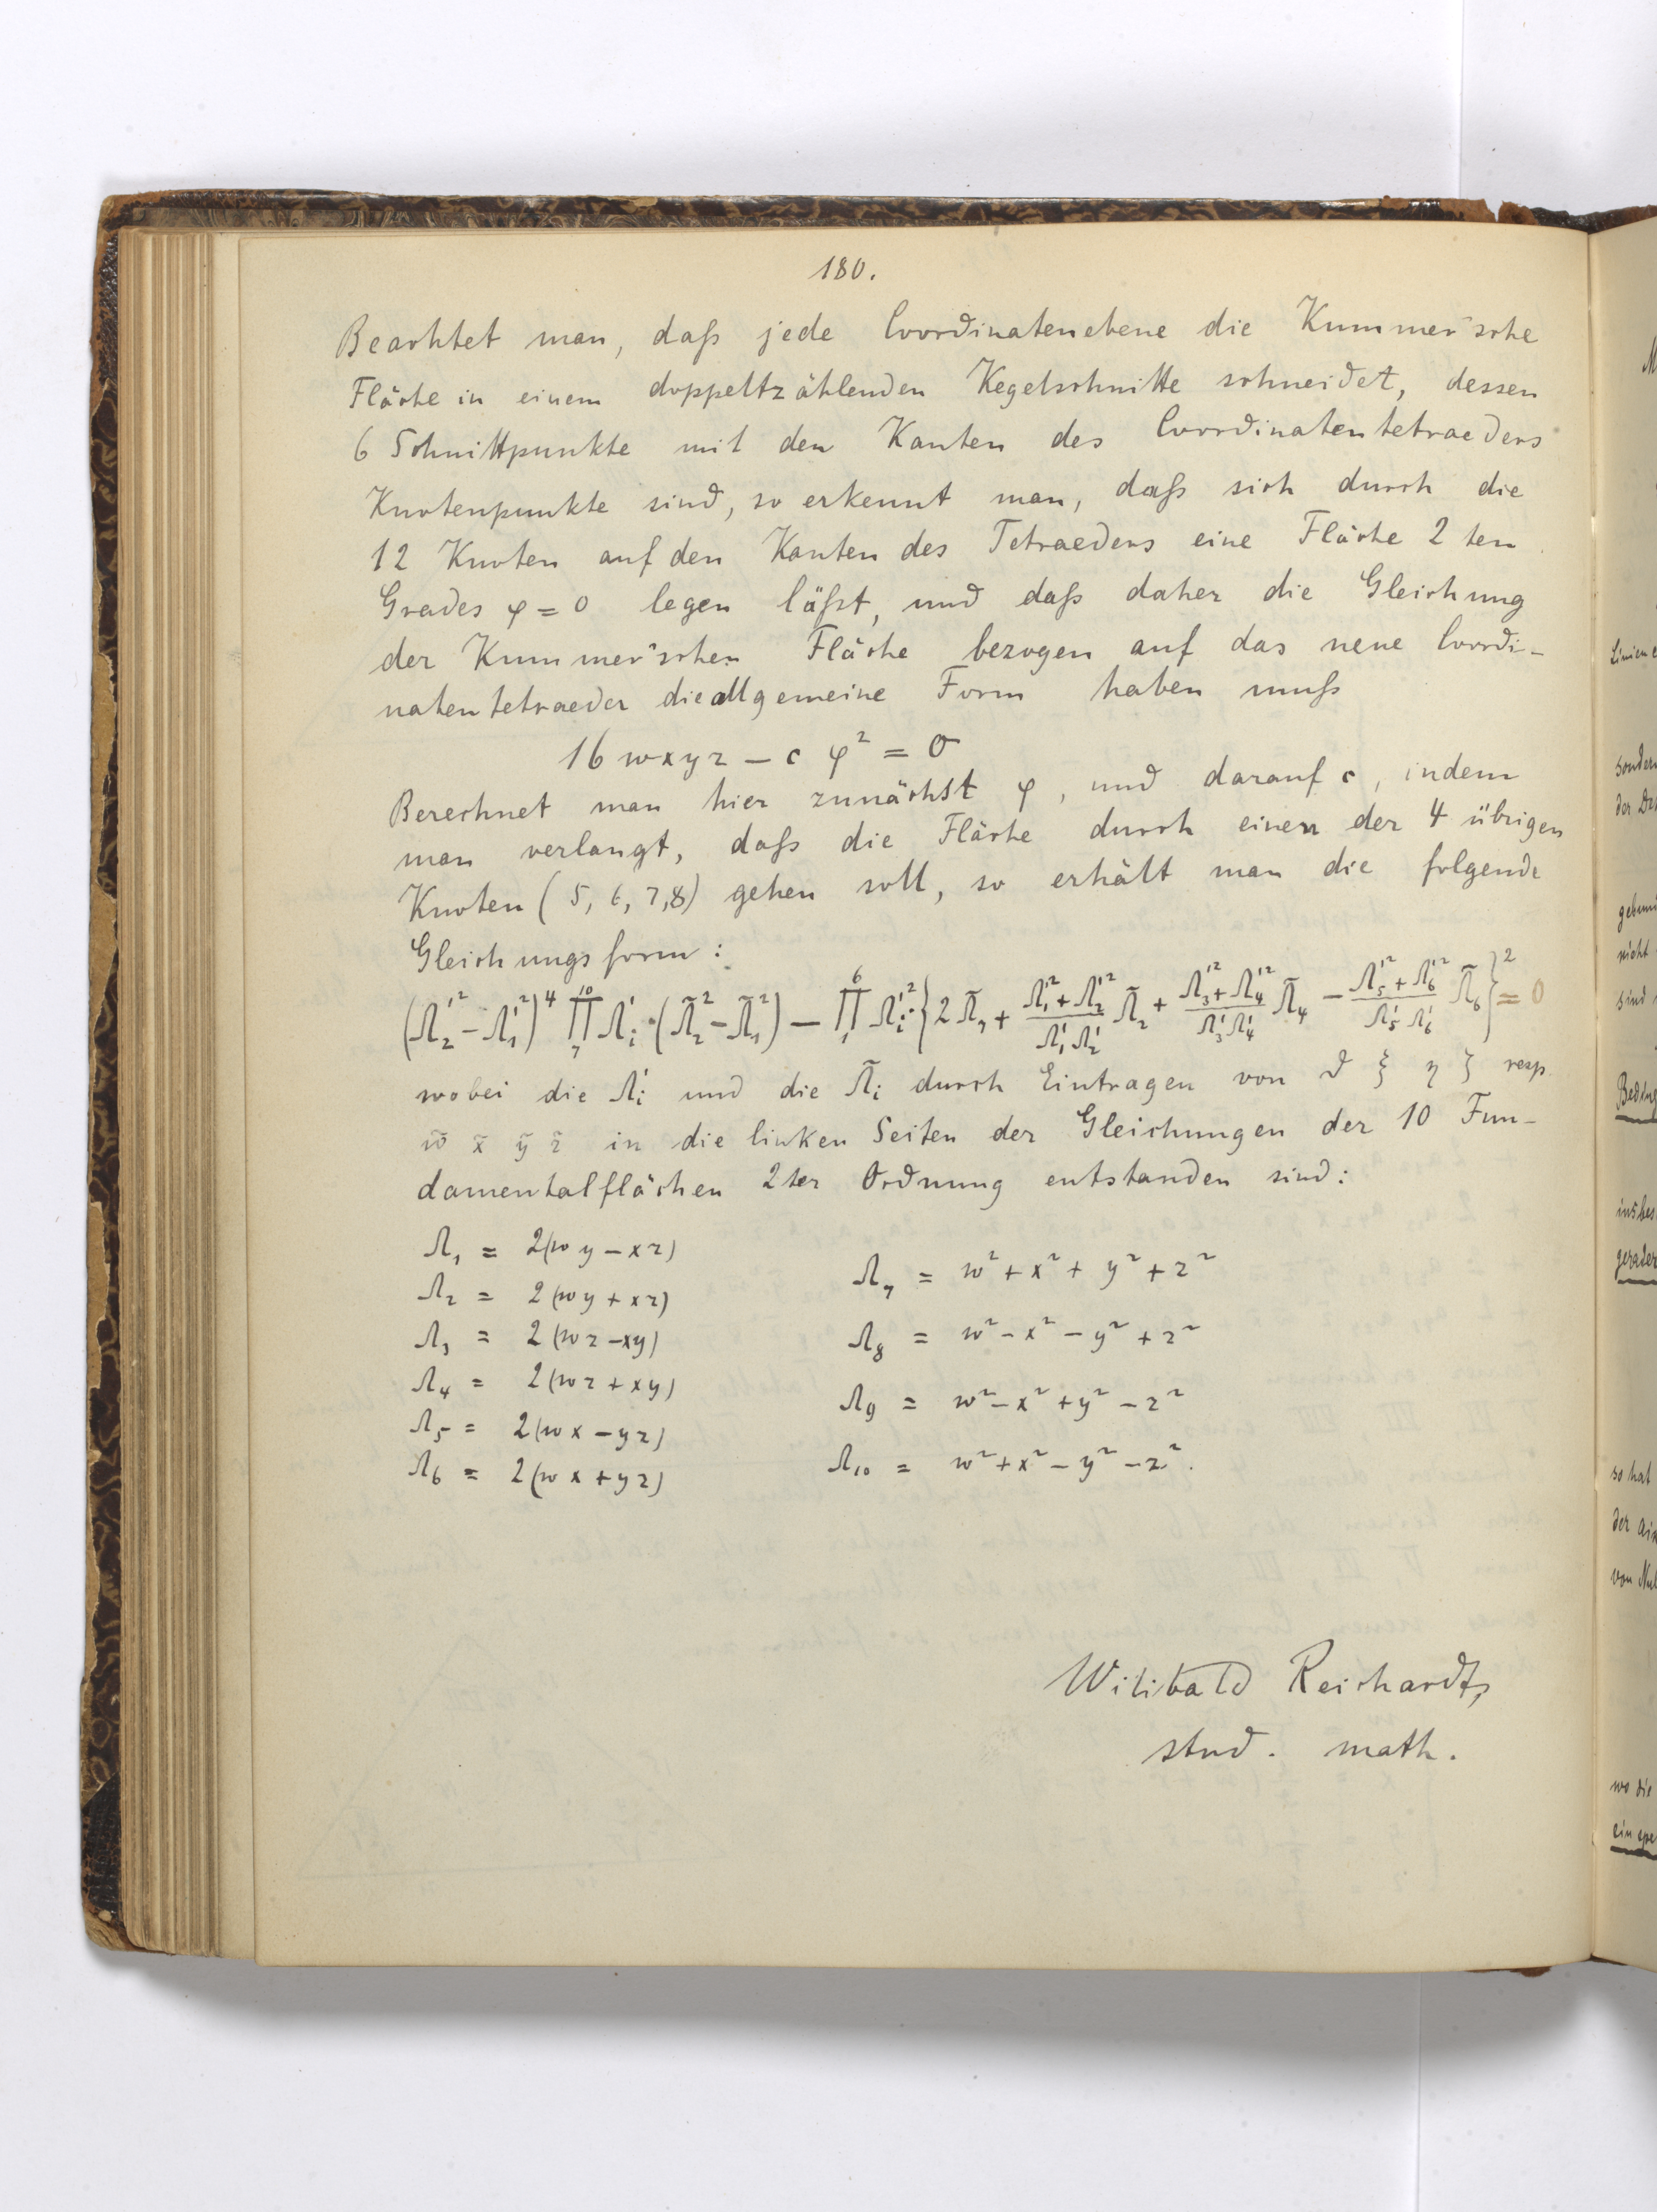 180.
Beachtet man, daß jede Coordinatenebene die Kummer'sche
Fläche in einem doppeltzählenden Kegelschnitte schneidet, dessen
6 Schnittpunkte mit den Kanten des Coordinatentetraeders
Knotenpunkte sind, so erkennt man, daß sich durch die
12 Knoten auf den Kanten des Tetraeders eine Fläche 2 ten
Grades φ = 0 legen läßt, und daß daher die Gleichung
der Kummer'schen Fläche bezogen auf das neue Coordi-
natentetraeder die allgemeine Form haben muß
16 wxyz – c φ² = 0
Berechnet man hier zunächst φ, und darauf c, indem
man verlangt, daß die Fläche durch einen der 4 übrigen
Knoten (5, 6, 7, 8) gehen soll, so erhält man die folgende
Gleichungsform:
(Λ₂'² – Λ₁'²)⁴ ∏₇¹⁰ Λᵢ' · (Λ̃₂² – Λ̃₁²) – ∏₁⁶ Λᵢ'² · {2 Λ̃₇ + (Λ₁'² + Λ₂'²)/(Λ₁' Λ₂') Λ̃₂ + (Λ₃'² + Λ₄'²)/(Λ₃' Λ₄') Λ̃₄ – (Λ₅'² + Λ₆'²)/(Λ₅' Λ₆') Λ̃₆}² = 0
wobei die Λᵢ' und die Λ̃ᵢ durch Eintragen von ϑ ξ η ζ resp.
w̃ x̃ ỹ z̃ in die linken Seiten der Gleichungen der 10 Fun-
damentalflächen 2ter Ordnung entstanden sind:
Λ₁ = 2(wy – xz)
Λ₂ = 2(wy + xz)
Λ₃ = 2(wz – xy)
Λ₄ = 2(wz + xy)
Λ₅ = 2(wx – yz)
Λ₆ = 2(wx + yz)
Λ₇ = w² + x² + y² + z²
Λ₈ = w² – x² – y² + z²
Λ₉ = w² – x² + y² – z²
Λ₁₀ = w² + x² – y² – z².
Wilibald Reichardt,
stud. math.
sondern
nicht
so hat
wo die